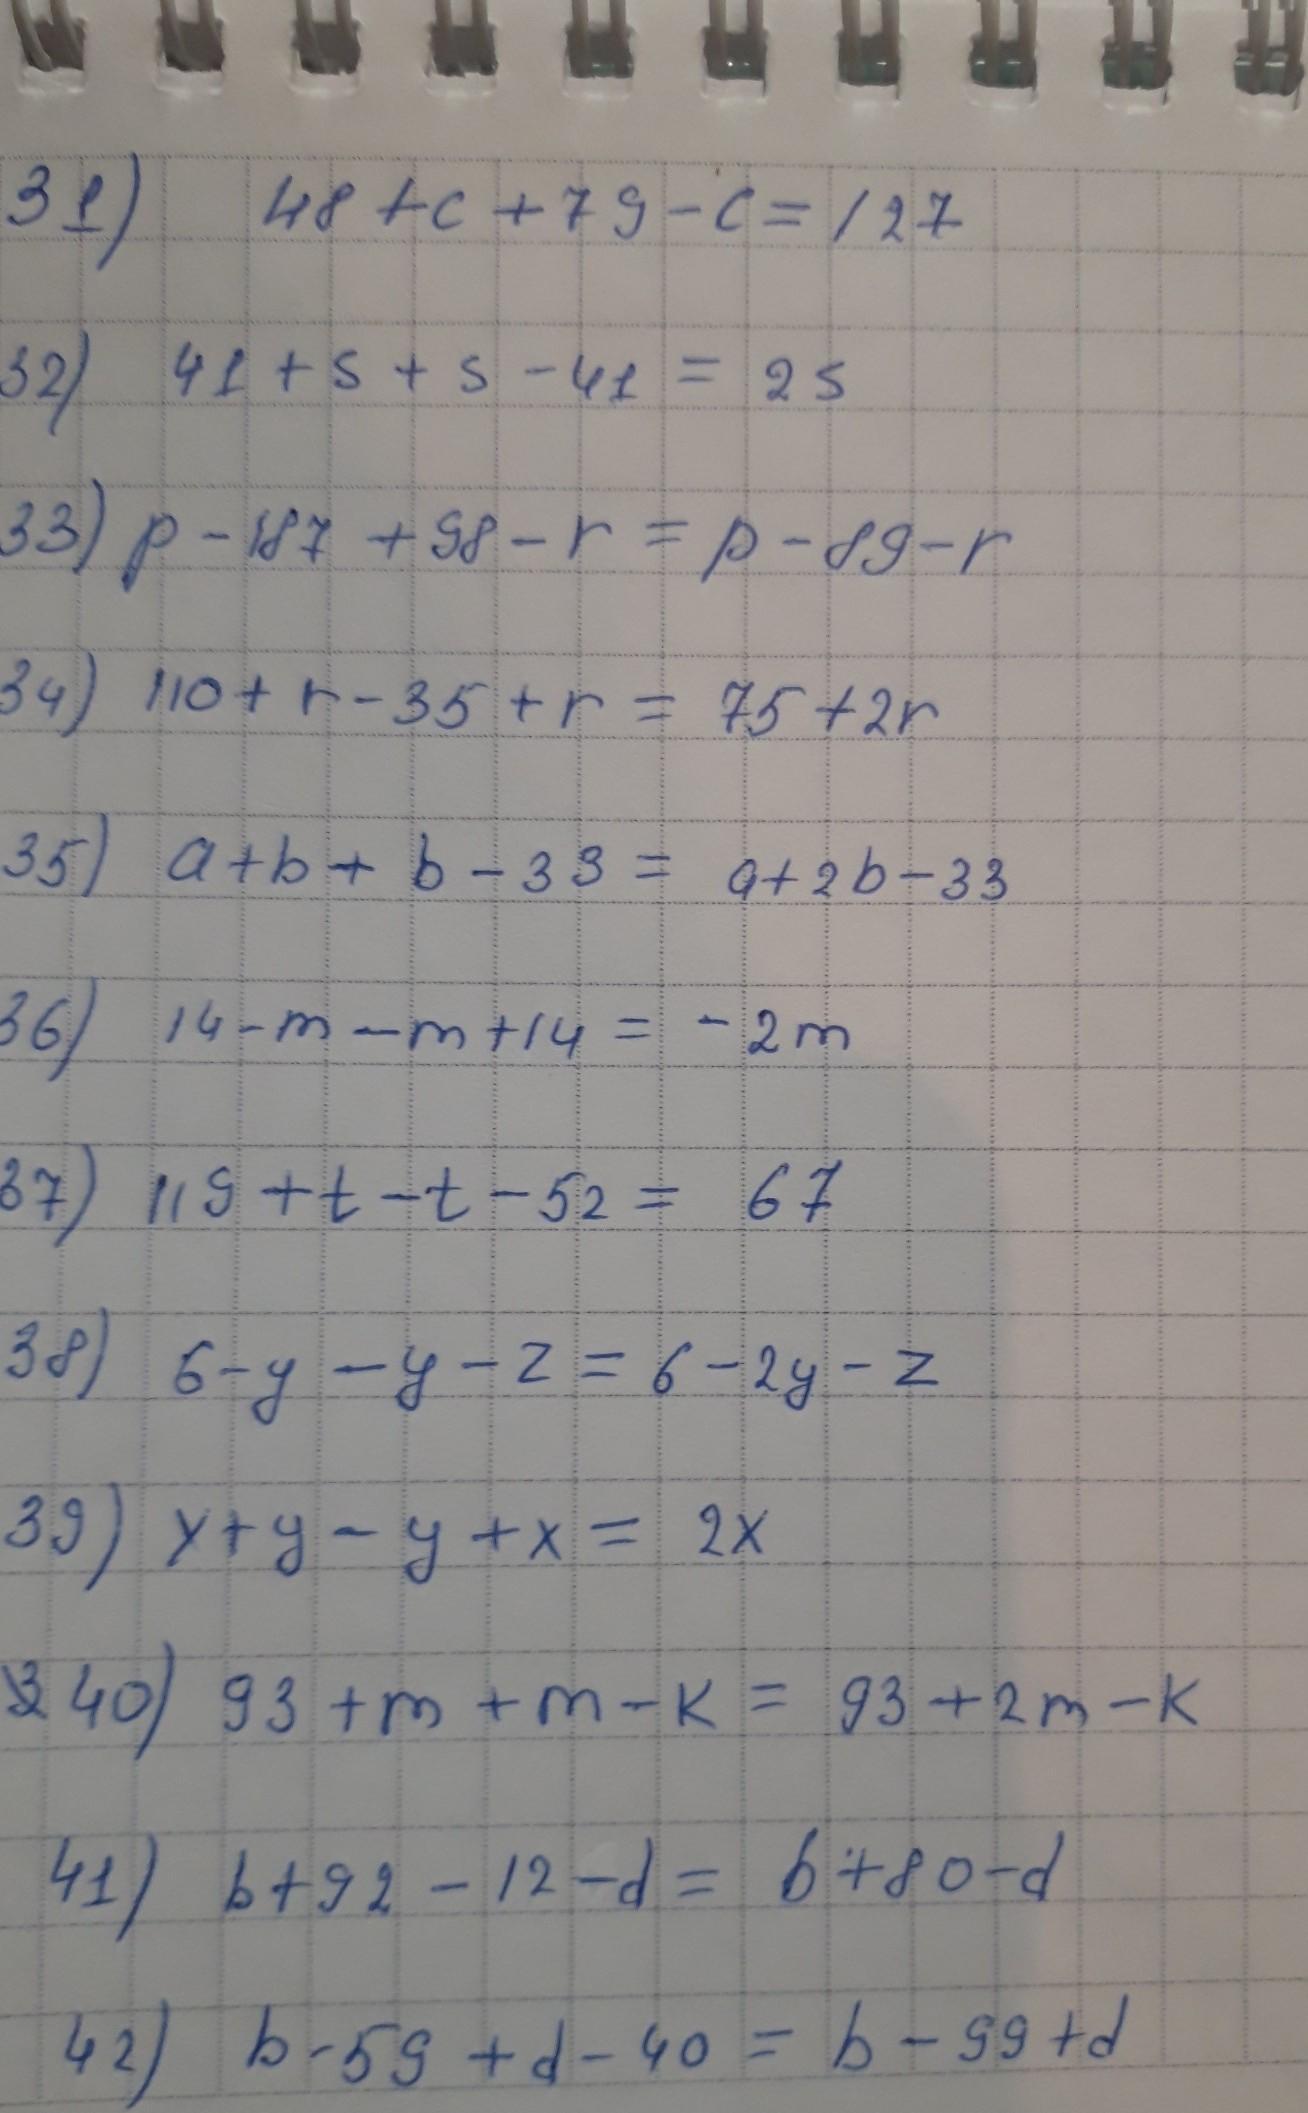 31) 48 + c + 79 - c = 127
32) 41 + s + s - 41 = 2s
33) p - 187 + 98 - r = p - 89 - r
34) 110 + r - 35 + r = 75 + 2r
35) a + b + b - 33 = a + 2b - 33
36) 14 - m - m + 14 = - 2m
37) 119 + t - t - 52 = 67
38) 6 - y - y - z = 6 - 2y - z
39) x + y - y + x = 2x
40) 93 + m + m - k = 93 + 2m - k
41) b + 92 - 12 - d = b + 80 - d
42) b - 59 + d - 40 = b - 99 + d